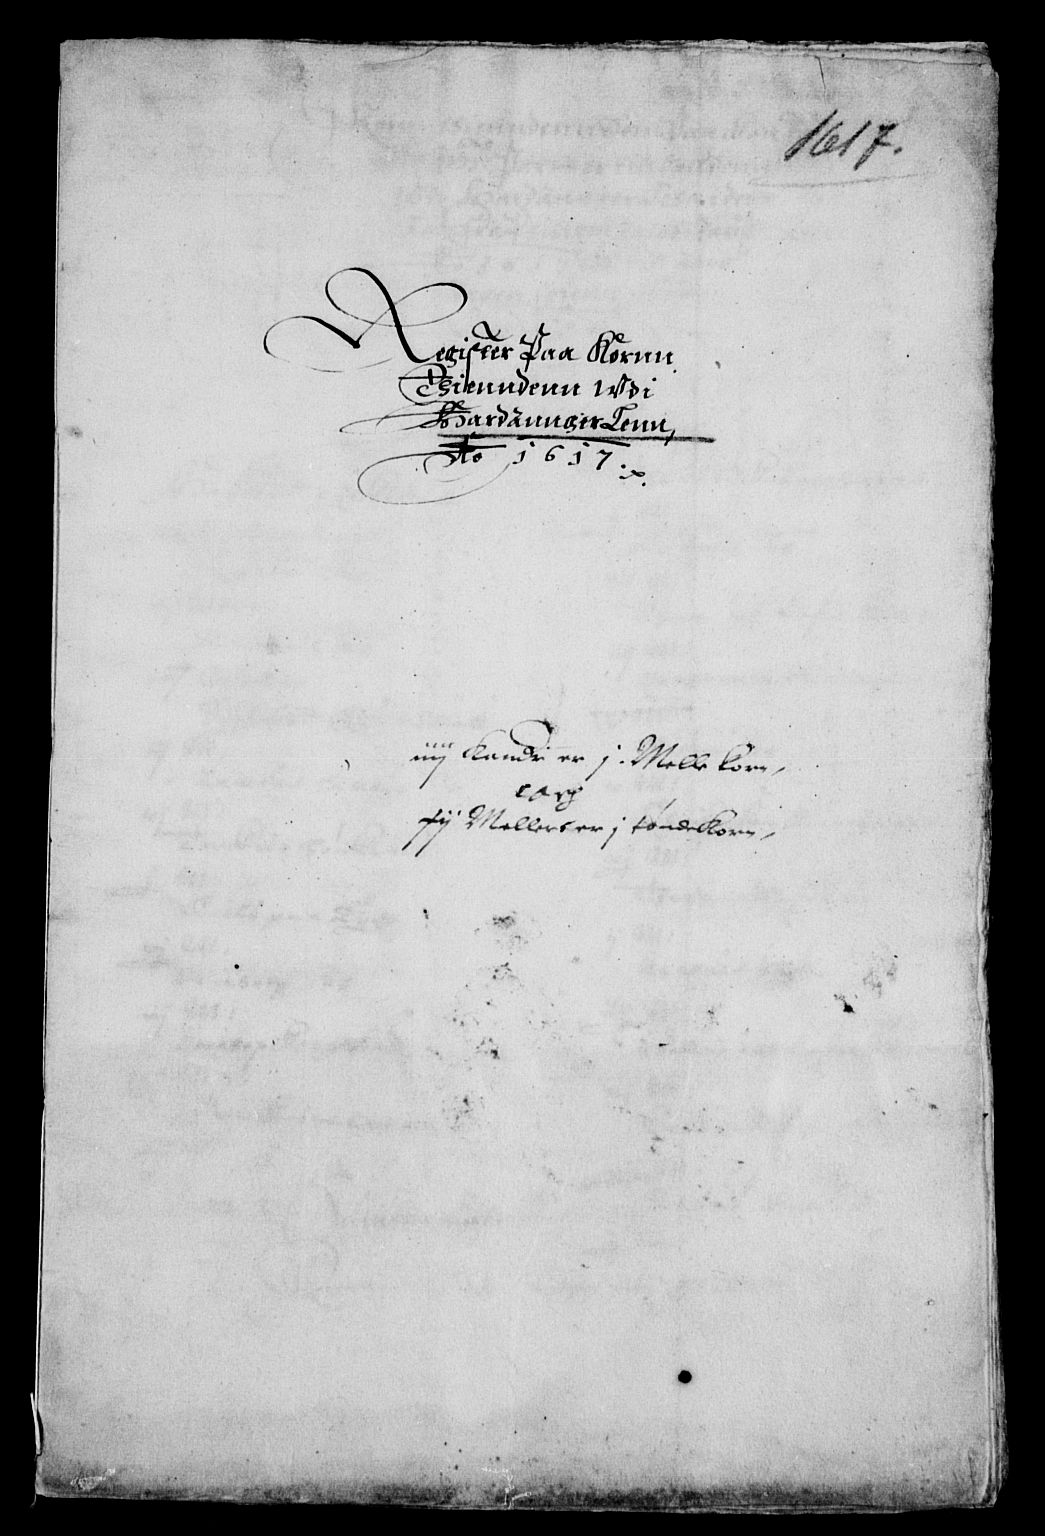 1617.
Register Paa Kornn
Thienndenn Wdi
Hardannger Lenn,
Ao 1617.
iiij Kander er j. Melle Korn,
och
Meller er j tønde Korn,